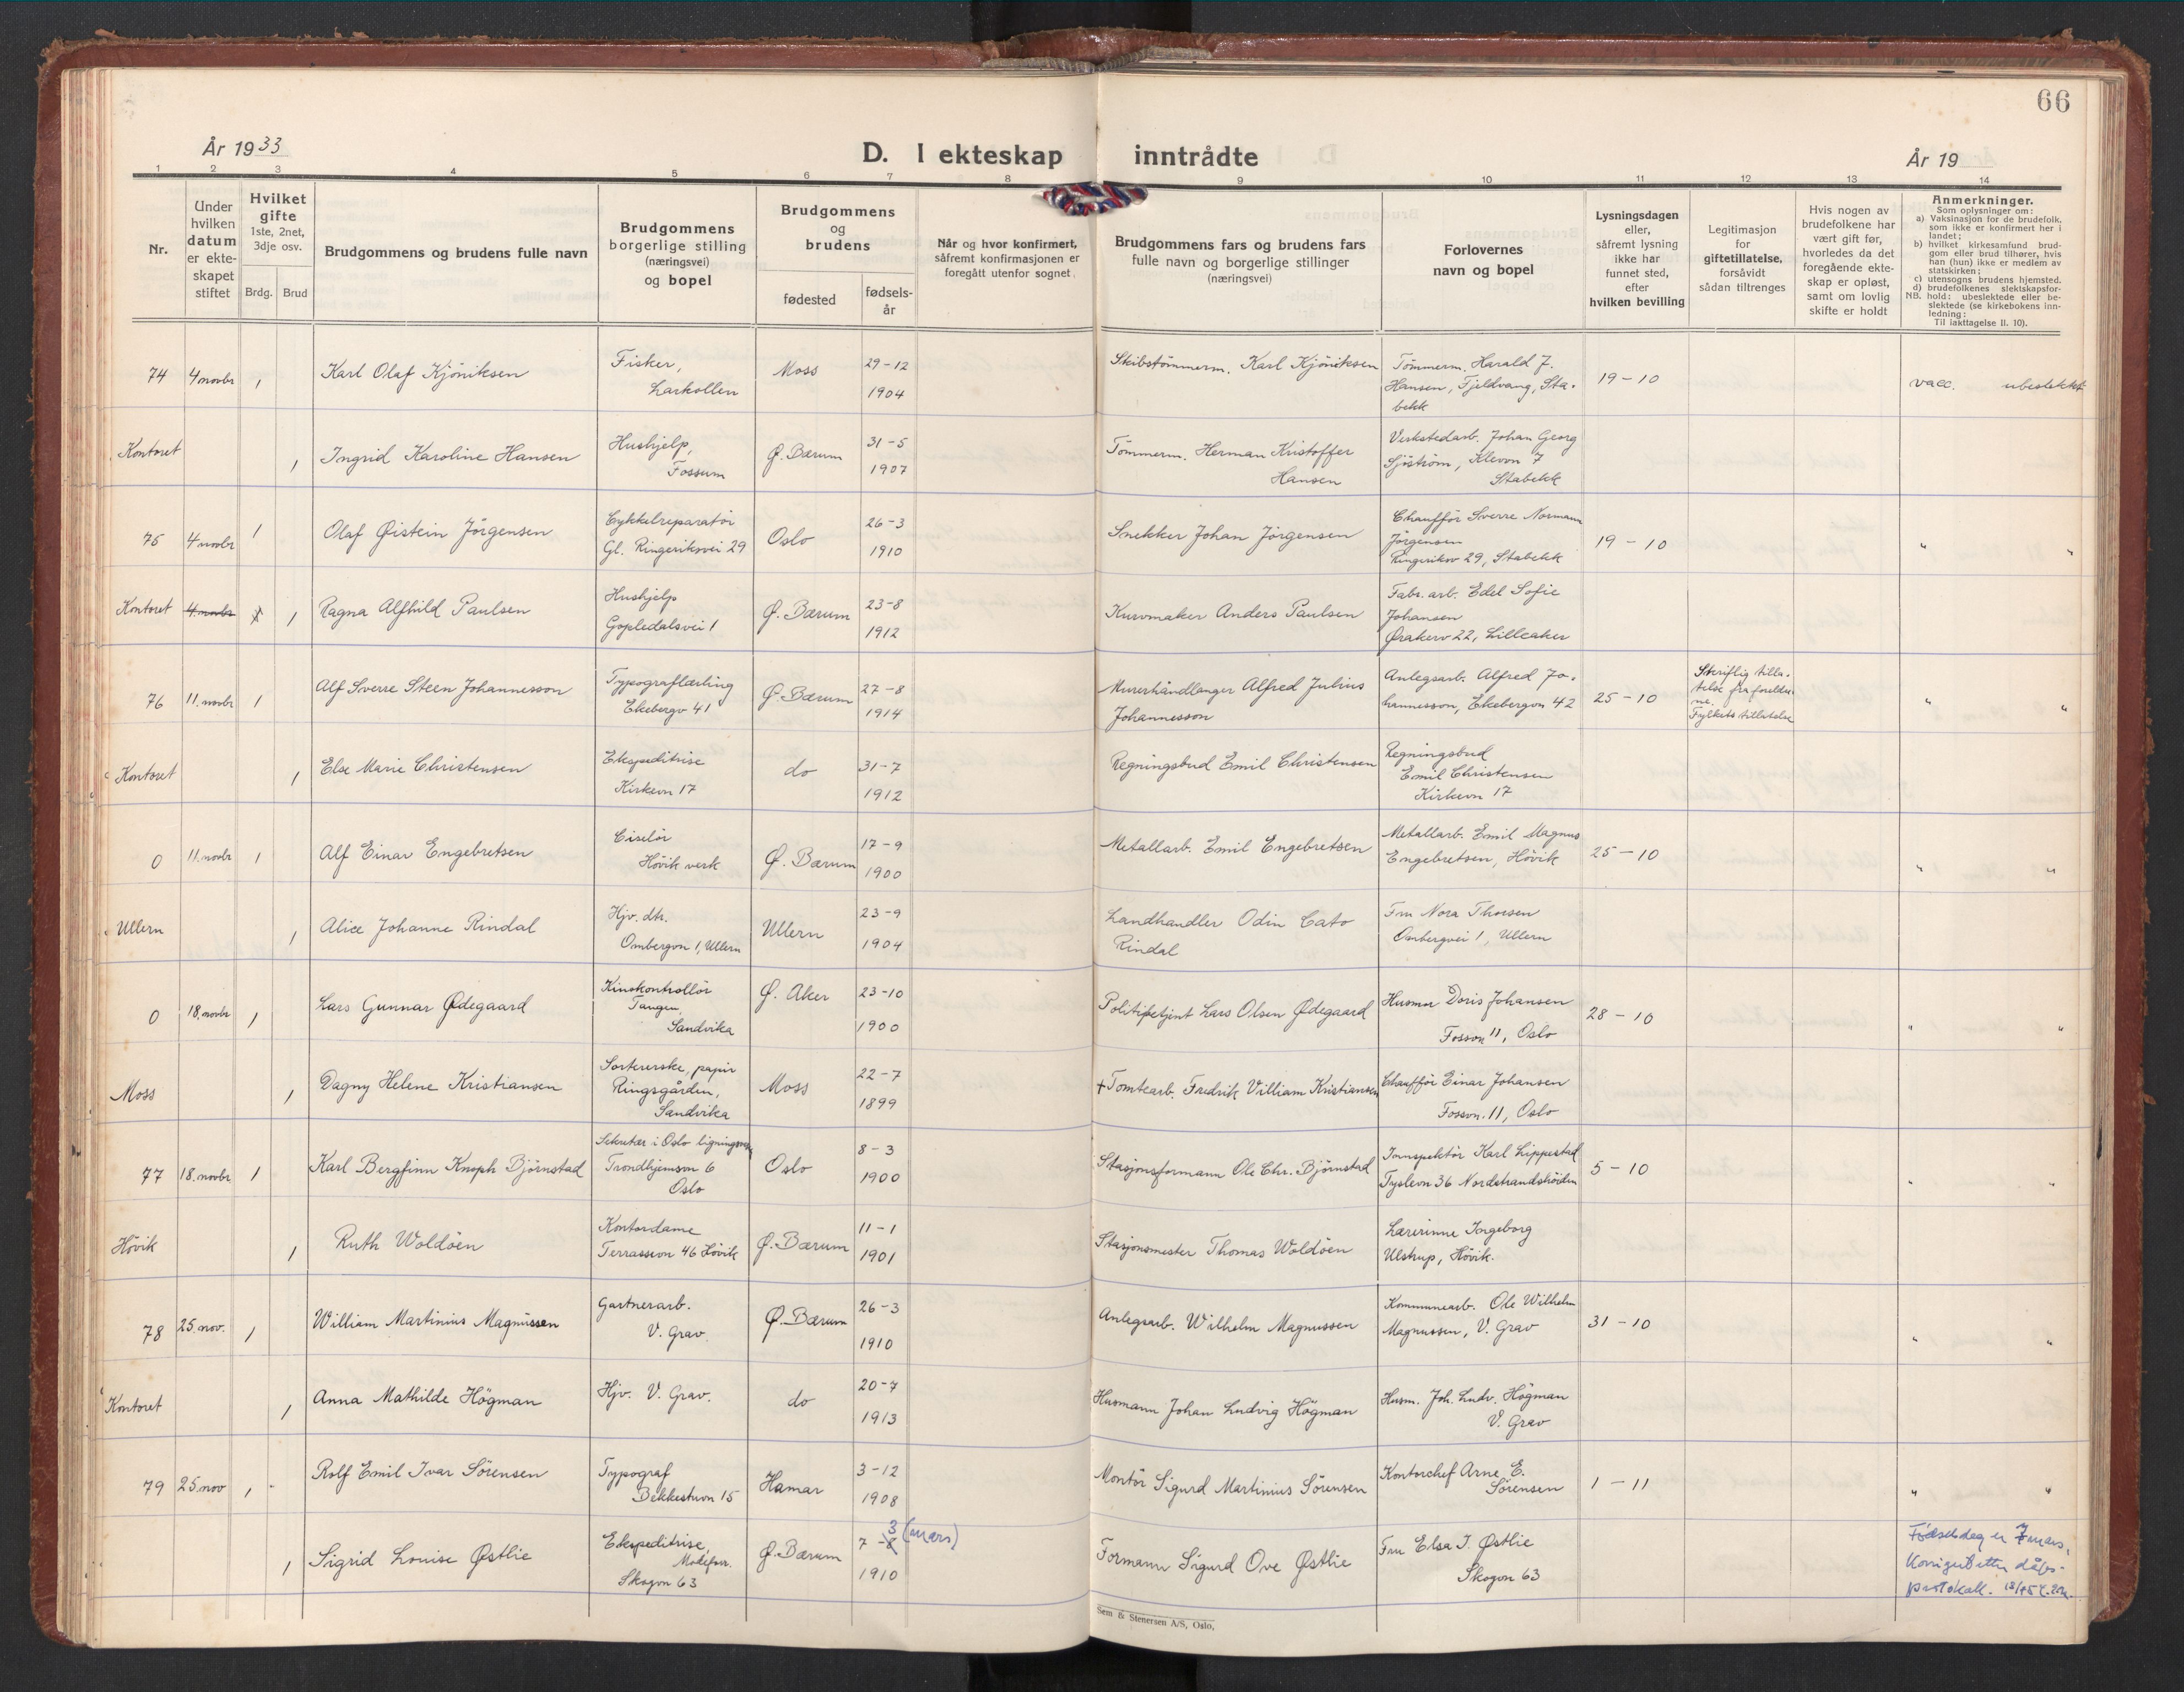 66
År 1933
D. I ekteskap inntrådte
År 19
1 2 3 4 5 6 7 8 9 10 11 12 13 14
Nr.
Under hvilken datum er ekteskapet stiftet
Hvilket gifte 1ste, 2net, 3dje osv.
Brdg. Brud
Brudgommens og brudens fulle navn
Brudgommens borgerlige stilling (næringsvei) og bopel
Brudgommens og brudens
fødested
fødsels-år
Når og hvor konfirmert, såfremt konfirmasjonen er foregått utenfor sognet
Brudgommens fars og brudens fars fulle navn og borgerlige stillinger (næringsvei)
Forlovernes navn og bopel
Lysningsdagen eller, såfremt lysning ikke har funnet sted, efter hvilken bevilling
Legitimasjon for giftetillatelse, forsåvidt sådan tiltrenges
Hvis nogen av brudefolkene har vært gift før, hvorledes da det foregående ekteskap er opløst, samt om lovlig skifte er holdt
Anmerkninger.
Som oplysninger om:
a) Vaksinasjon for de brudefolk, som ikke er konfirmert her i landet;
b) hvilket kirkesamfund brudgom eller brud tilhører, hvis han (hun) ikke er medlem av statskirken;
c) utensogns brudens hjemsted.
d) brudefolkenes slektskapsforhold: ubeslektede eller beslektede (se kirkebokens innledning:
NB. Til iakttagelse II. 10).
74 4 novbr 1 Karl Olaf Kjöniksen Fisker, Larkollen Moss 29-12 1904 Skibstömmerm. Karl Kjöniksen Tömmerm. Harald J. Hansen, Fjeldvang, Stabekk 19-10 vacc. ubeslektet
Kontoret 1 Ingrid Karoline Hansen Hushjelp, Fossum Ø. Bærum 31-5 1907 Tömmerm. Herman Kristoffer Hansen Verkstedarb. Johan Georg Sjöström, Klevvn 7 Stabekk
75 4 novbr 1 Olaf Øistein Jörgensen Cykkelreparatör Gl. Ringeriksvei 29 Oslo 26-3 1910 Snekker Johan Jörgensen Chaufför Sverre Normann Jörgensen Ringeriksv 29, Stabekk 19-10 " "
Kontoret 4. novbr 1 1 Ragna Alfhild Paulsen Hushjelp Gopledalsvei 1 Ø. Bærum 23-8 1912 Kurvmaker Anders Paulsen Fabr. arb. Edel Sofie Johansen Ørakerv 22, Lilleaker
76 11. novbr 1 Alf Sverre Steen Johannesson Typograflærling Ekebergv 41 Ø. Bærum 27-8 1914 Murerhåndlanger Alfred Julius Johannesson Anlegsarb. Alfred Johannesson, Ekebergvn 42 25-10 Skriftlig tillatelse fra foreldrene. Fylkets tillatelse " "
Kontoret 1 Else Marie Christensen Ekspeditrise Kirkevn 17 do 31-7 1912 Regningsbud Emil Christensen Regningsbud Emil Christensen Kirkevn 17
0 11. novbr 1 Alf Einar Engebretsen Ciselör Hövik verk Ø. Bærum 17-9 1900 Metallarb. Emil Engebretsen Metallarb. Emil Magnus Engebretsen, Hövik 25-10 " "
Ullern 1 Alice Johanne Rindal Hjv. dtr. Ombergvn 1, Ullern Ullern 23-9 1904 Landhandler Odin Cato Rindal Fru Nora Thorsen Ombergvei 1, Ullern
0 18. novbr 1 Lars Gunnar Ødegaard Kinokontrollör Tangen, Sandvika Ø. Aker 23-10 1900 Politibetjent Lars Olsen Ødegaard Husmor Doris Johansen Fossvn 11, Oslo 28-10 " "
Moss 1 Dagny Helene Kristiansen Sortererske, papir Ringsgården, Sandvika Moss 22-7 1899 + Tomtearb. Fredrik Villiam Kristiansen Chaufför Einar Johansen Fossvn. 11, Oslo
77 18. novbr 1 Karl Bergfinn Knoph Björnstad Sekretær i Oslo Trondhjemsvn 6 Oslo Oslo 8-3 1900 Stasjonsformann Ole Chr. Björnstad Innspektör Karl Lippestad 36 Nordstrandshöiden 5-10 " "
Hövik 1 Ruth Woldöen Kontordame Terrassevn 46 Hövik Ø. Bærum 11-1 1901 Stasjonsmester Thomas Woldöen Lærerinne Ingeborg Ulstrup, Hövik.
78 25. nov. 1 William Martinius Magnussen Gartnerarb. V. Grav. Ø. Bærum 26-3 1910 Anlegsarb. Wilhelm Magnussen Kommunearb. Ole Wilhelm Magnussen, V. Grav 31-10 " "
Kontoret 1 Anna Mathilde Högman Hjv. V. Grav. do 20-7 1913 Husmann Johan Ludvig Högman Husm. Joh. Ludv. Högman V. Grav
79 25. nov 1 - Rolf Emil Ivar Sörensen Typograf Bekkestuvn 15 Hamar 3-12 1908 Montör Sigurd Martinius Sörensen Kontorchef Arne E. Sörensen 1-11 " "
1 Sigrid Louise Østlie Ekspeditrise, Skogvn 63 Ø. Bærum 7-3 (mars) 1910 Formann Sigurd Ove Østlie Fru Elsa I. Østlie Skogvn 63 Födselsdag er 7 mars. Korrigert etter dåpsprotokoll.
Sem & Stenersen A/S, Oslo.